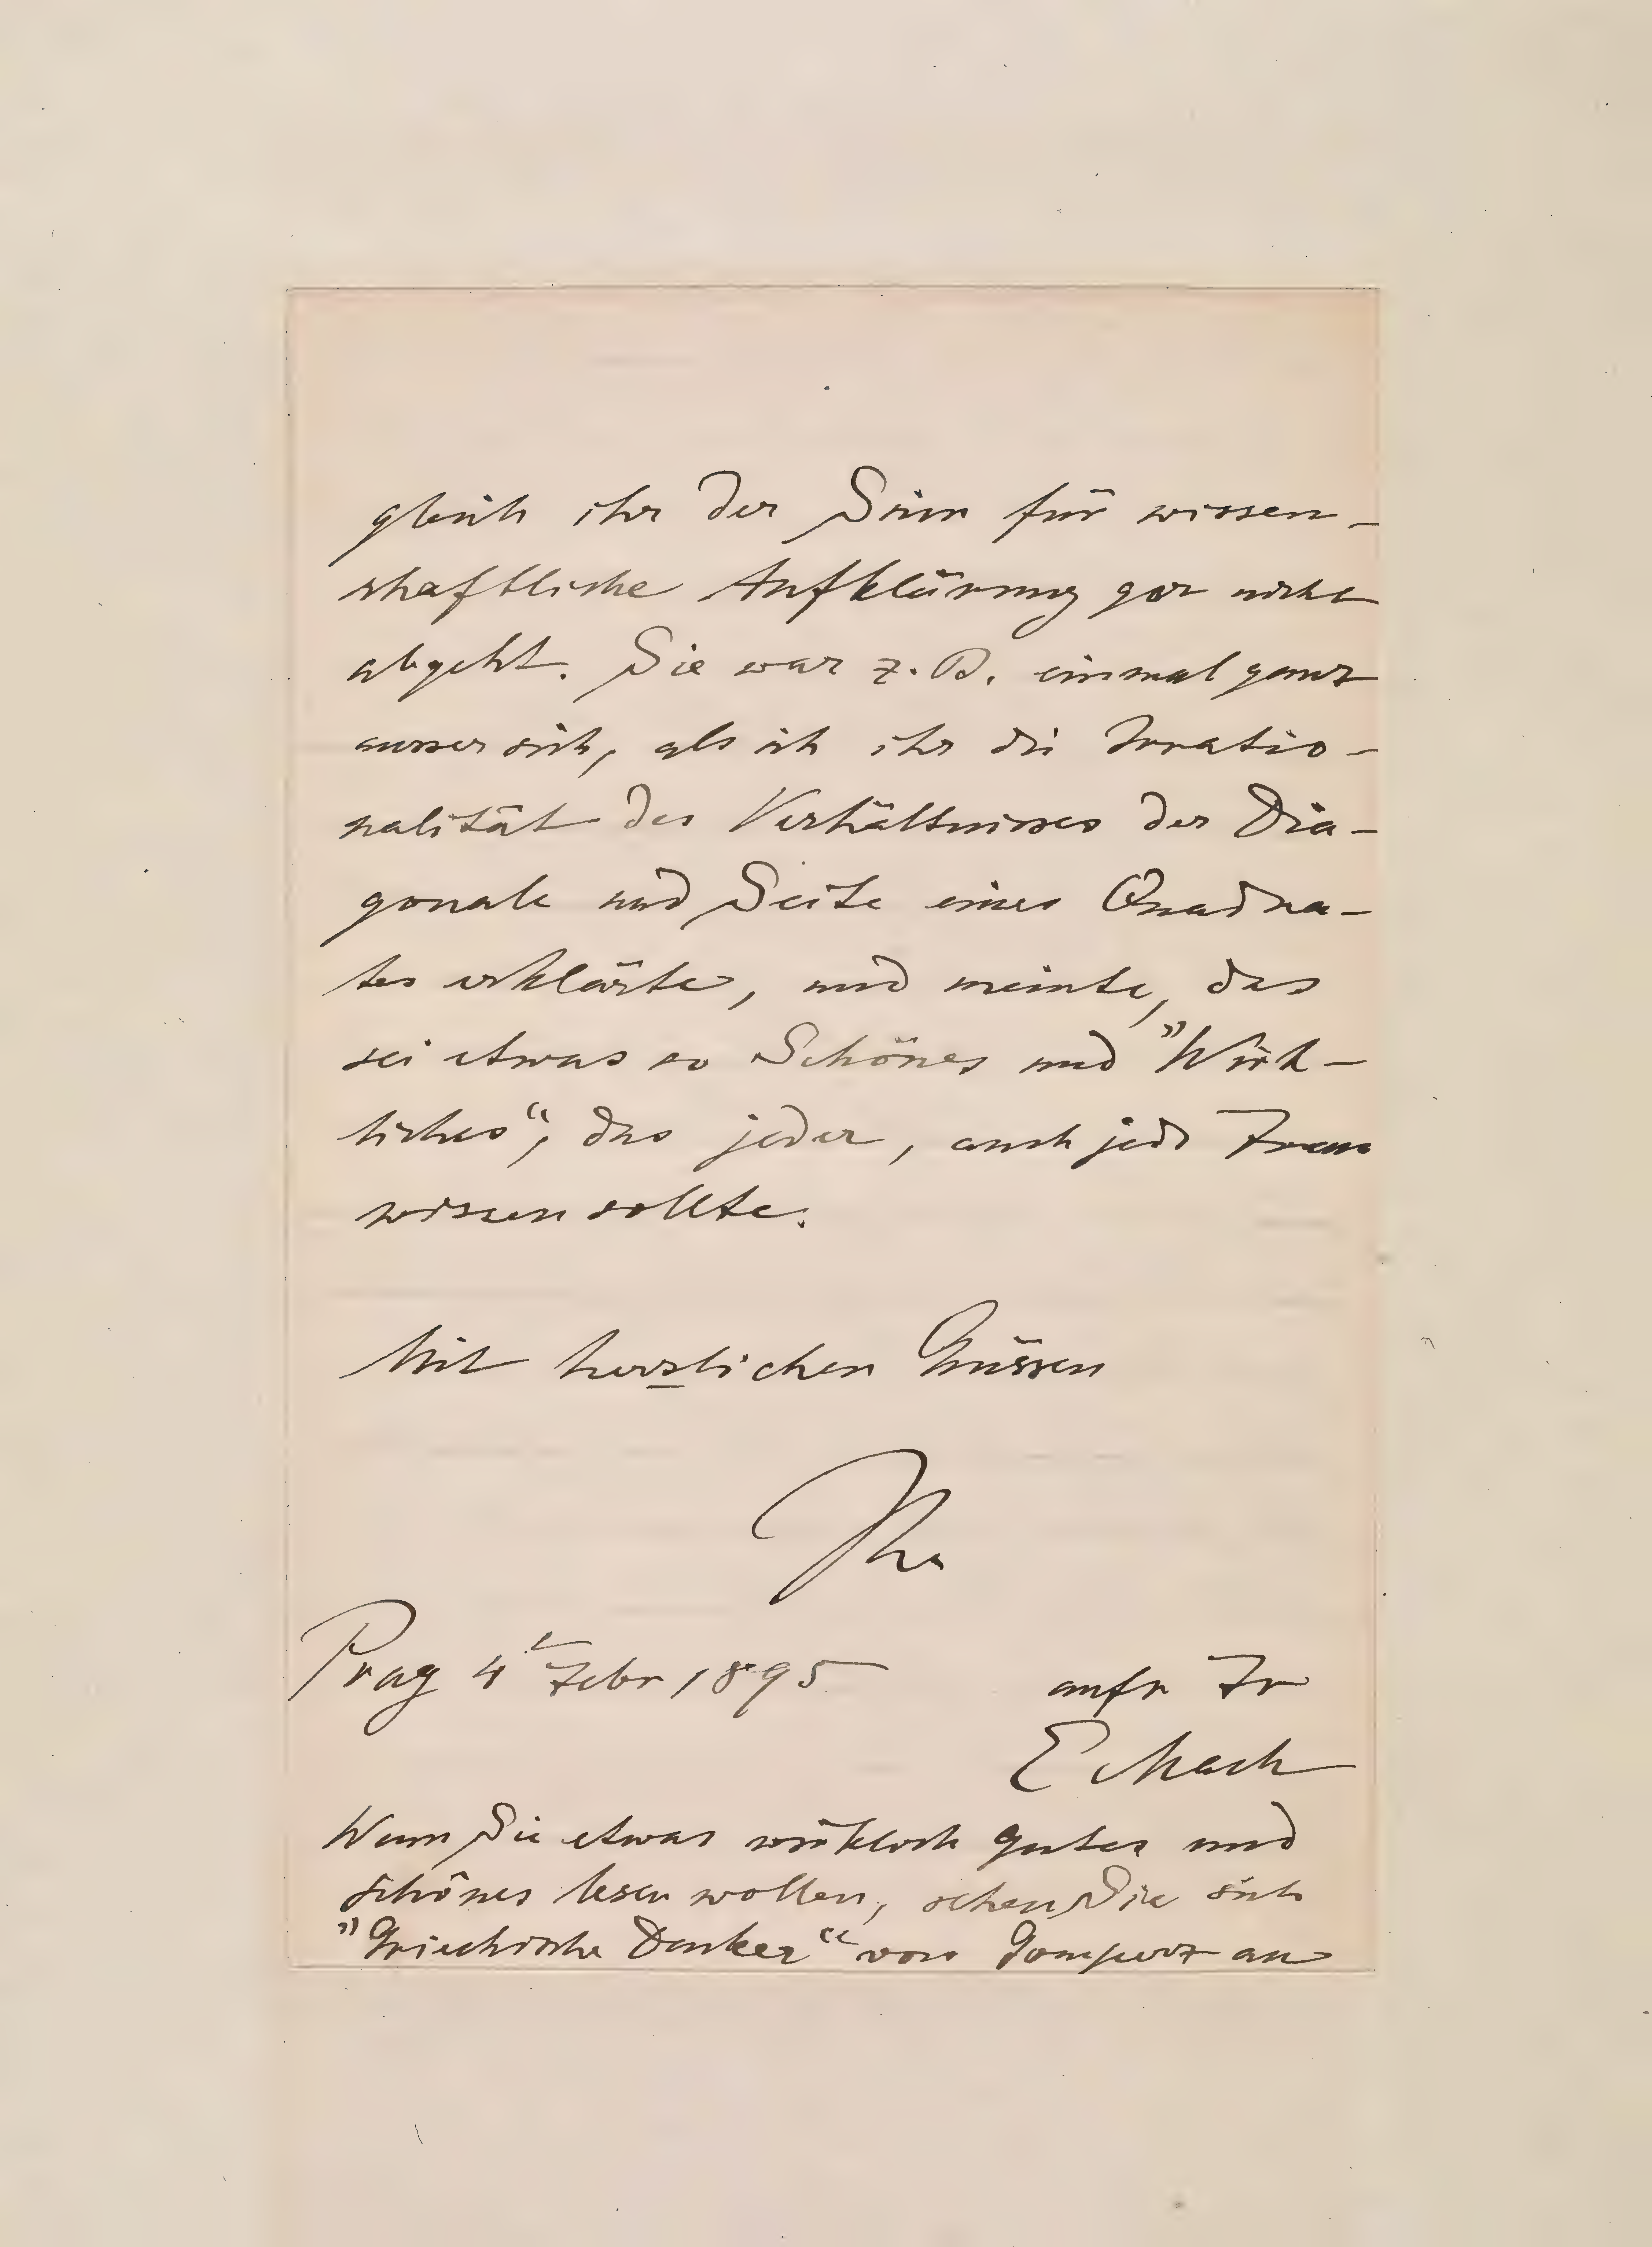 gleich ihr der Sinn für wissen-
schaftliche Aufklärung gar nicht
abgeht. Sie war z. B. einmal ganz
ausser sich, als ich ihr die Irratio-
nalität des Verhältnisses der Dia-
gonale und Seite eines Quadra-
tes erklärte, und meinte, das
sei etwas so Schönes und "Wirk-
liches", das jeder, auch jede Frau
wissen sollte.
Mit herzlichen Grüssen
Ihr
Prag 4t Febr 1895
aufr Fr
E Mach
Wenn Sie etwas wirklich gutes und
schönes lesen wollen, sehen Sie sich
"Griechische Denker" von Gomperz an